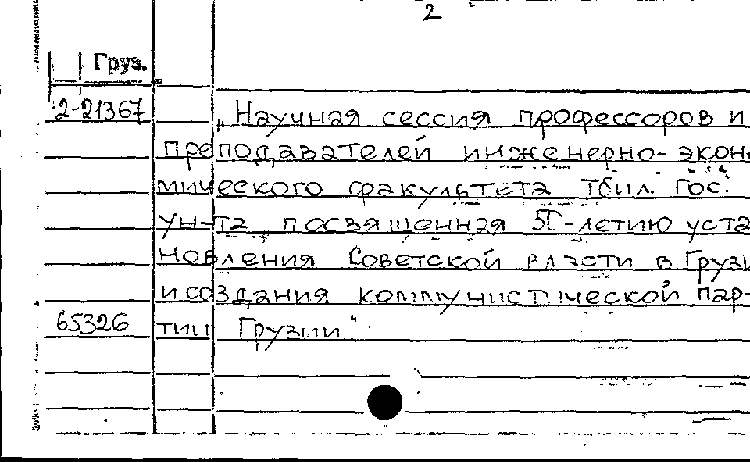 2
Груз.
2-21367 „Научная сессия профессоров и
преподавателей инженерно-экон
мического факультета Тбил. Гос.
ун-та посвященная 50-летию уста
новления Советской власти в Грузи
и создания коммунистической пар-
65326 тии Грузии"